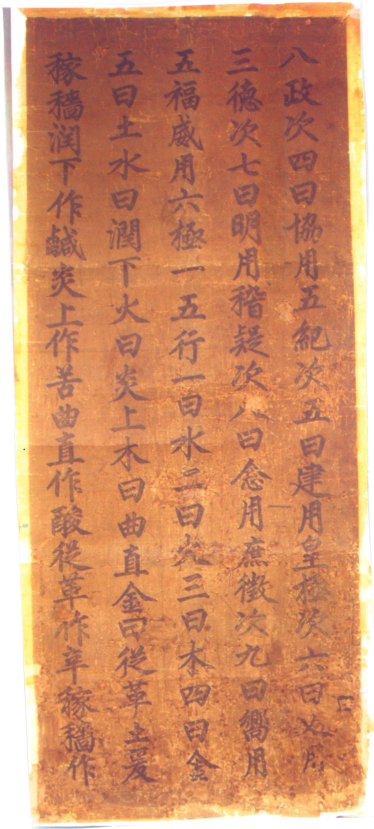 八政次四曰協用五紀次五曰建用皇極次六曰乂用
三德次七曰明用稽疑次八曰念用庶徵次九曰嚮用
五福威用六極一五行一曰水二曰火三曰木四曰金
五曰土水曰潤下火曰炎上木曰曲直金曰從革土爰
稼穡潤下作鹹炎上作苦曲直作酸從革作辛稼穡作